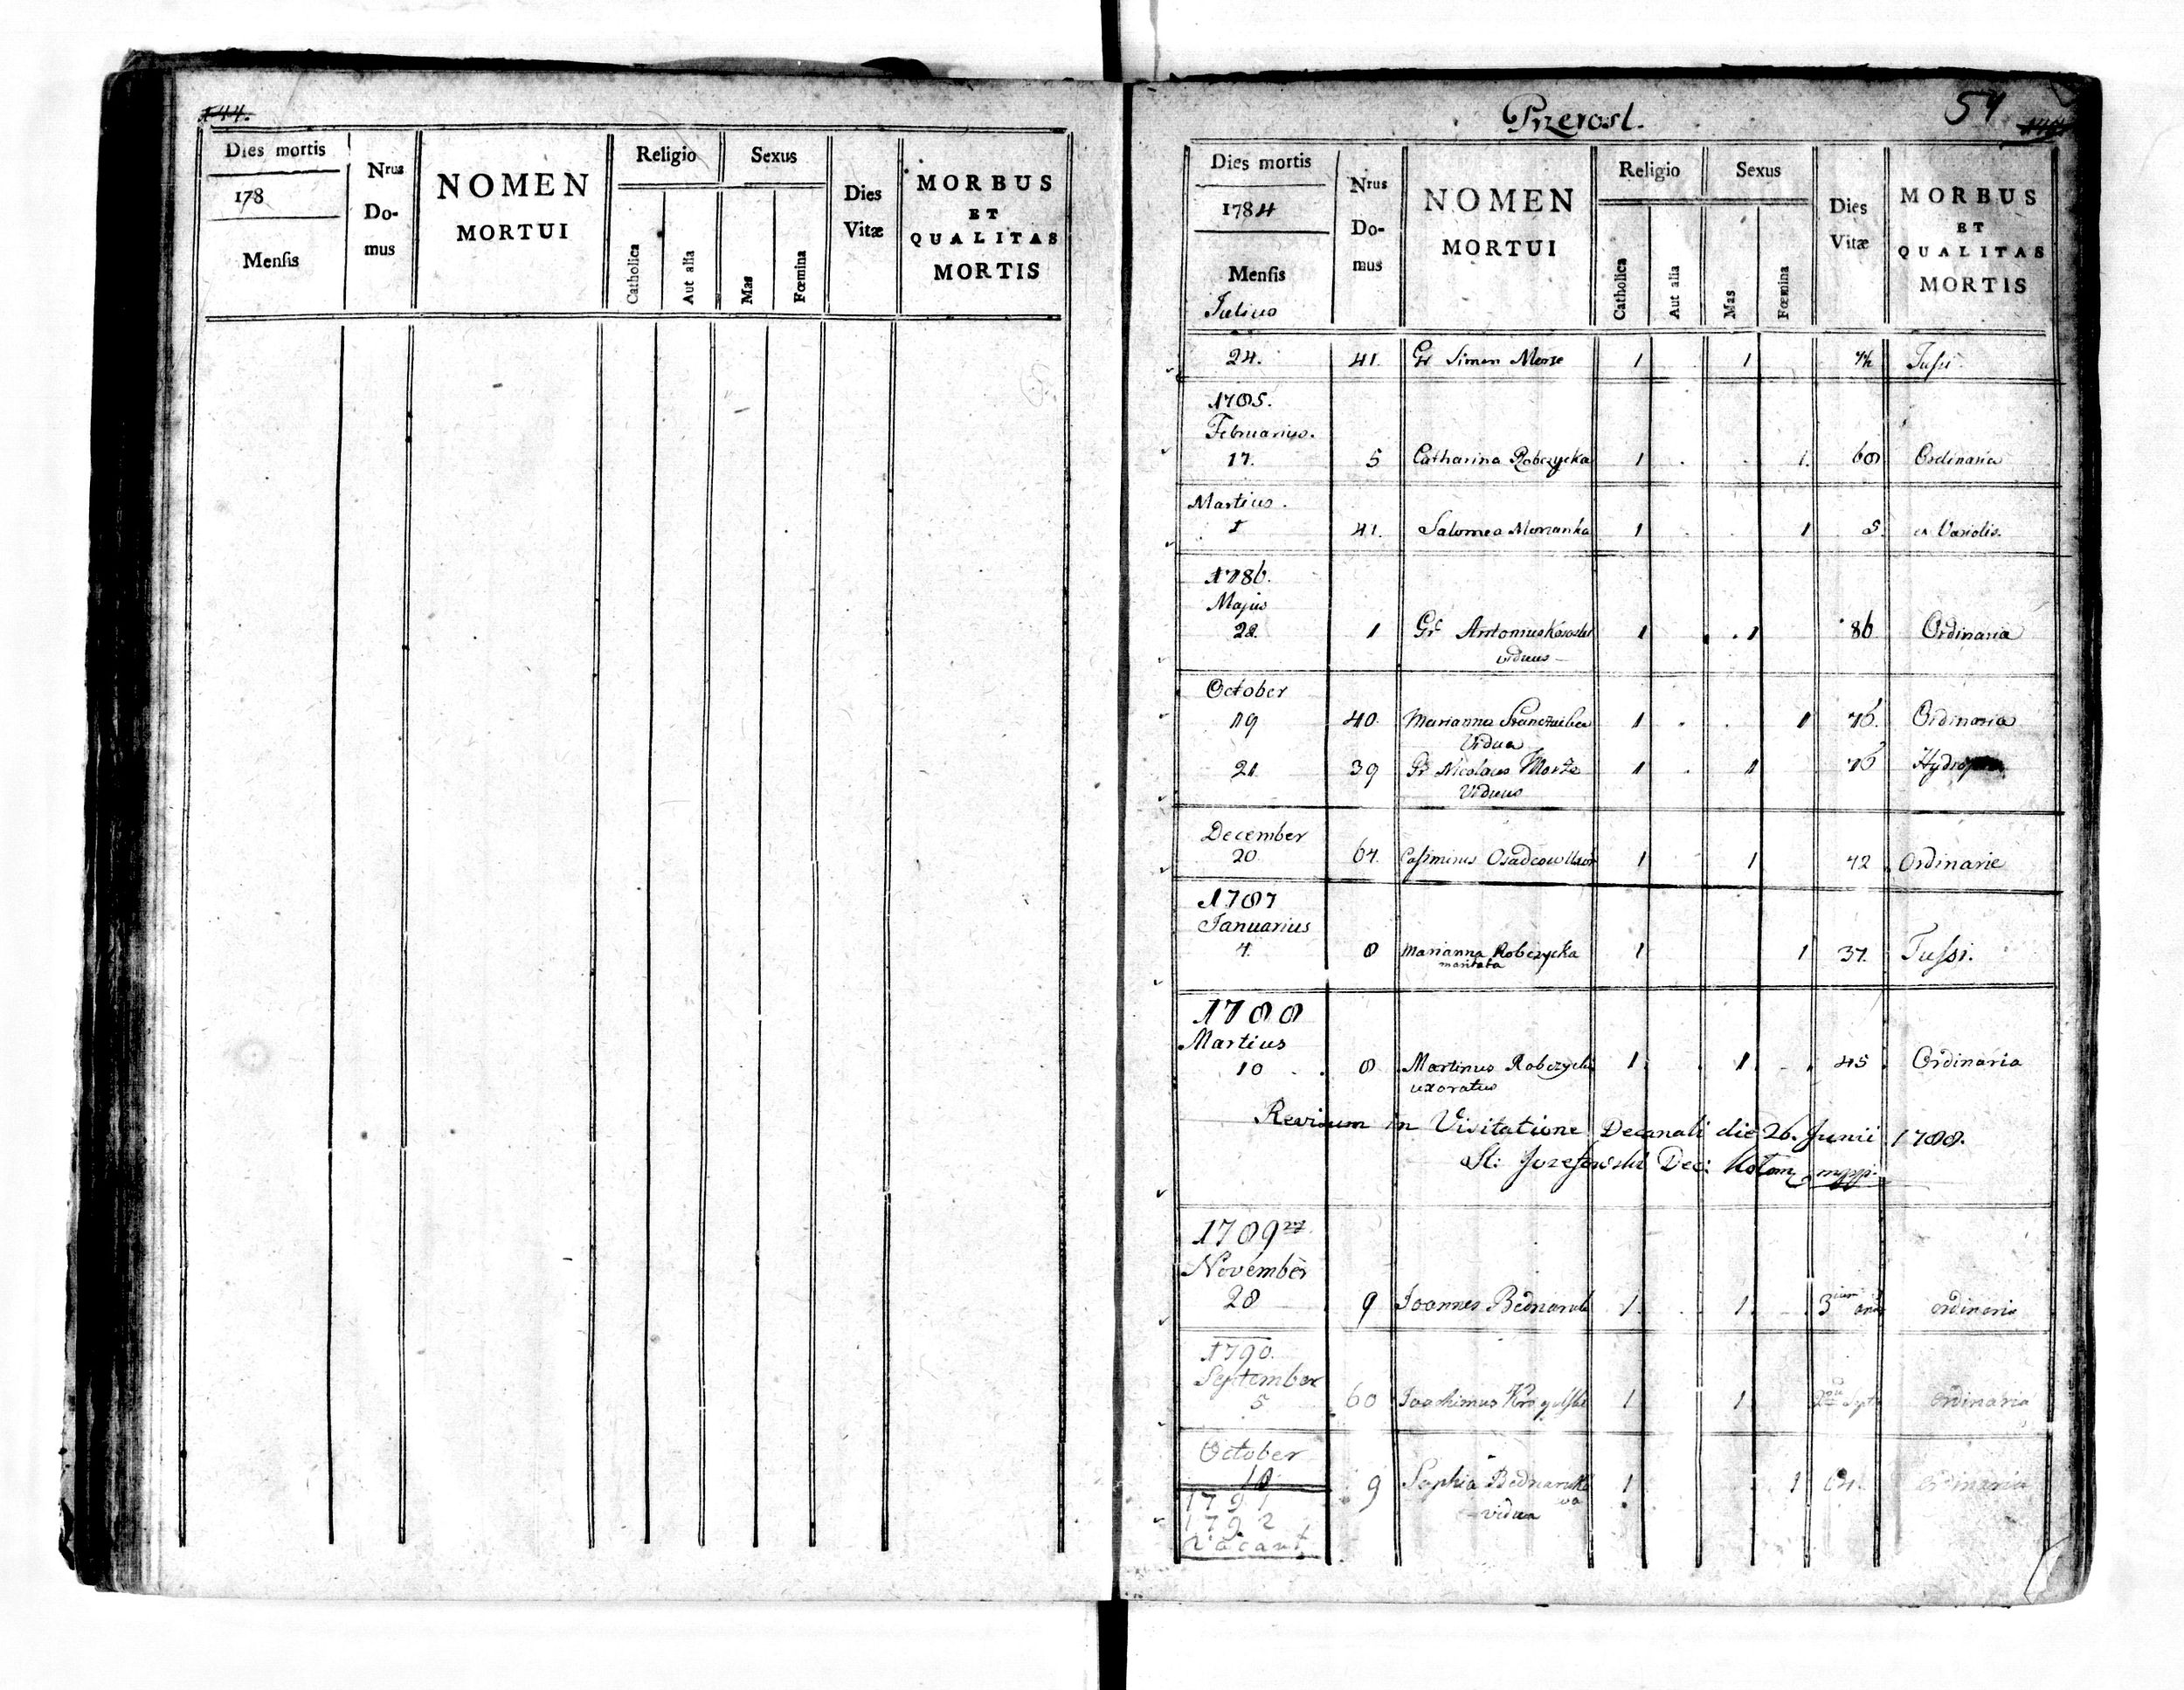 144.
Dies mortis
178
Mensis
Nrus
Do-
mus
NOMEN
MORTUI
Religio
Catholica
Aut alia
Sexus
Mas
Fœmina
Dies
Vitæ
MORBUS
ET
QUALITAS
MORTIS
Przerosl.
Dies mortis
1784
Mensis
Julius
Nrus
Do-
mus
NOMEN
MORTUI
Religio
Catholica
Aut alia
Sexus
Mas
Fœmina
Dies
Vitæ
MORBUS
ET
QUALITAS
MORTIS
24. 41. Gr Simon 1 1 Tussi
1785.
Februarius.
17. 5 Catharina Robczycka 1 1. 60 Ordinaria
Martius.
1 41. Salomea 1 1 5. ex Variolis.
1786.
Majus
22. 1 Gr. Antonius 1 1 86 Ordinaria
viduus
October
19 40. Marianna 1 1 76. Ordinaria
Vidua
21 39 Gr Nicolaus Morże 1 1 76
Viduus
December
20. 64. Casimirus 1 1 42 Ordinarie
1787
Januarius
4. 8 Marianna Robczycka 1 1 37. Tussi.
maritata
1788
Martius
10 8 Martinus Robczycki 1 1 45 Ordinaria
uxoratus
Revisum in Visitatione Decanali die 26. Junii 1788.
St: Jozefowski Dec: Kołom mppp.
1789
November
28 9 Joannes 1 1 3 ordinaria
1790.
September
5 60 Joachimus 1 1 ordinaria
October
18 9 Sophia 1 1 Ordinaria
vidua
1791
1792
vacant